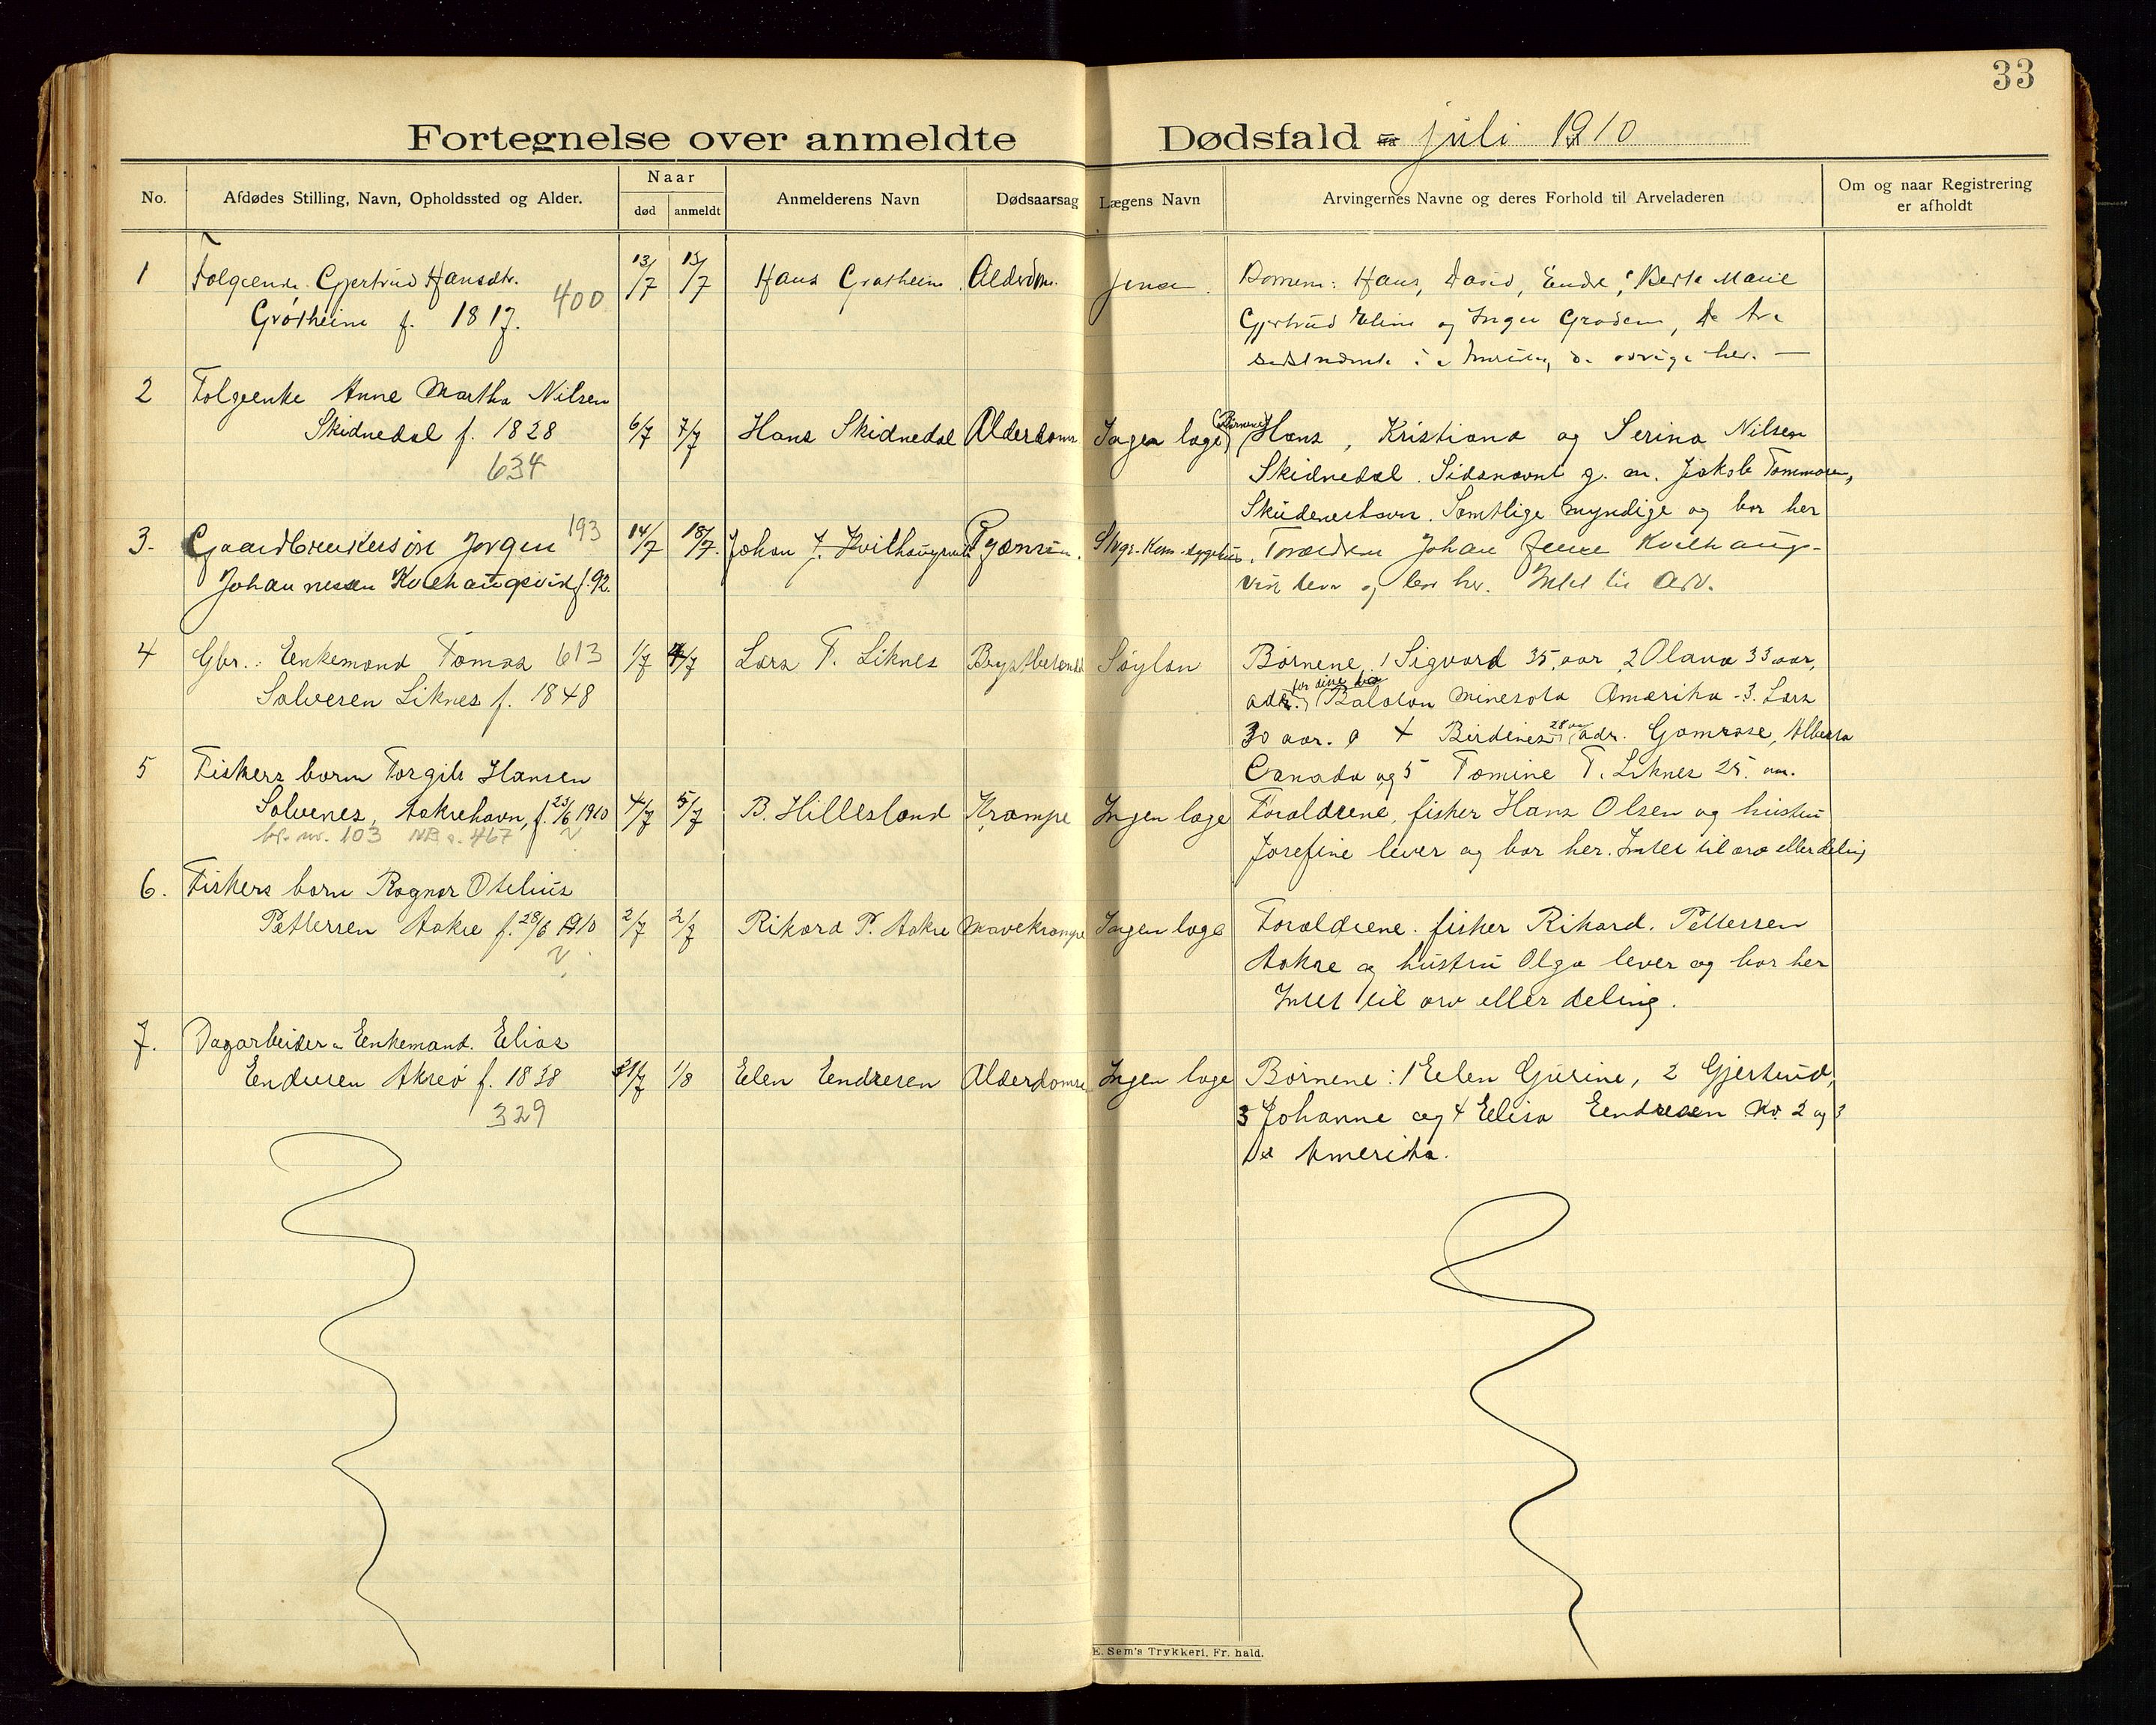 33
Fortegnelse over anmeldte Dødsfald fra juli 1910
No. Afdødes Stilling, Navn, Opholdssted og Alder. Naar død anmeldt Anmelderens Navn Dødsaarsag Lægens Navn Arvingernes Navne og deres Forhold til Arveladeren Om og naar Registrering er afholdt
1 Gjertrud Hansdtr. 13/7 15/7 Hans Alderdom. Hans, David, Endre, Berte Marie
f. 1817. 400 Gjertrud Eline og Inger
her. —
2 Folgeenke Anne Martha Nilsen
Skidnedal f. 1828 6/7 7/7 Hans Skidnedal Alderdoms Ingen læge (Børnene) Hans, Kristiana og Serina Nilsen
634 Skidnedal. Sidsnævnt g. m. Jakob Tommasen,
Skudeneshavn. Samtlige myndige og bor her
3. Jørgen 193 14/7 18/7. Johan J. Johan
Johannesen f. 92. og bor her. Intet til Arv.
4 Gbr.: Enkemand Tomas 613 1/7 4/7 Lars T. Liknes Søylan Børnene, 1 Sigvard 35 aar, 2 Olava 33 aar,
Salvesen Liknes f. 1848 adr. Balaton Minesota Amerika - 3. Lars
30 aar. 4 Berdines 28 aar adr. Gamrose, Alberta
Canada og 5 Tomine T. Liknes 25 aar.
5 Fiskers barn Torgils Hansen
Salvenes, Aakrehavn, f. 23/6 1910 4/7 5/7 B. Hillesland Krampe Ingen læge Forældrene, fisker Hans Olsen og hustru
bl. nr. 103 467 Josefine lever og bor her. Intet til arv eller deling
6. Fiskers barn Ragnar Otelius
Pettersen Aakre f. 28/6 1910 2/7 2/7 Rikard P. Aakre Mavekrampe Ingen læge Forældrene. fisker Rikard. Pettersen
Aakre og hustru Olga lever og bor her
Intet til arv eller deling.
7. Dagarbeider Enkemand. Elias
Endresen Akreø f. 1838 31/7 1/8 Elen Endresen Alderdoms Ingen læge Børnene: 1 Elen Gurine, 2 Gjertrud,
329 3 Johanne og 4 Elisa Endresen No 2 og 3
Amerika.
E. Sem's Trykkeri, Fr. hald.